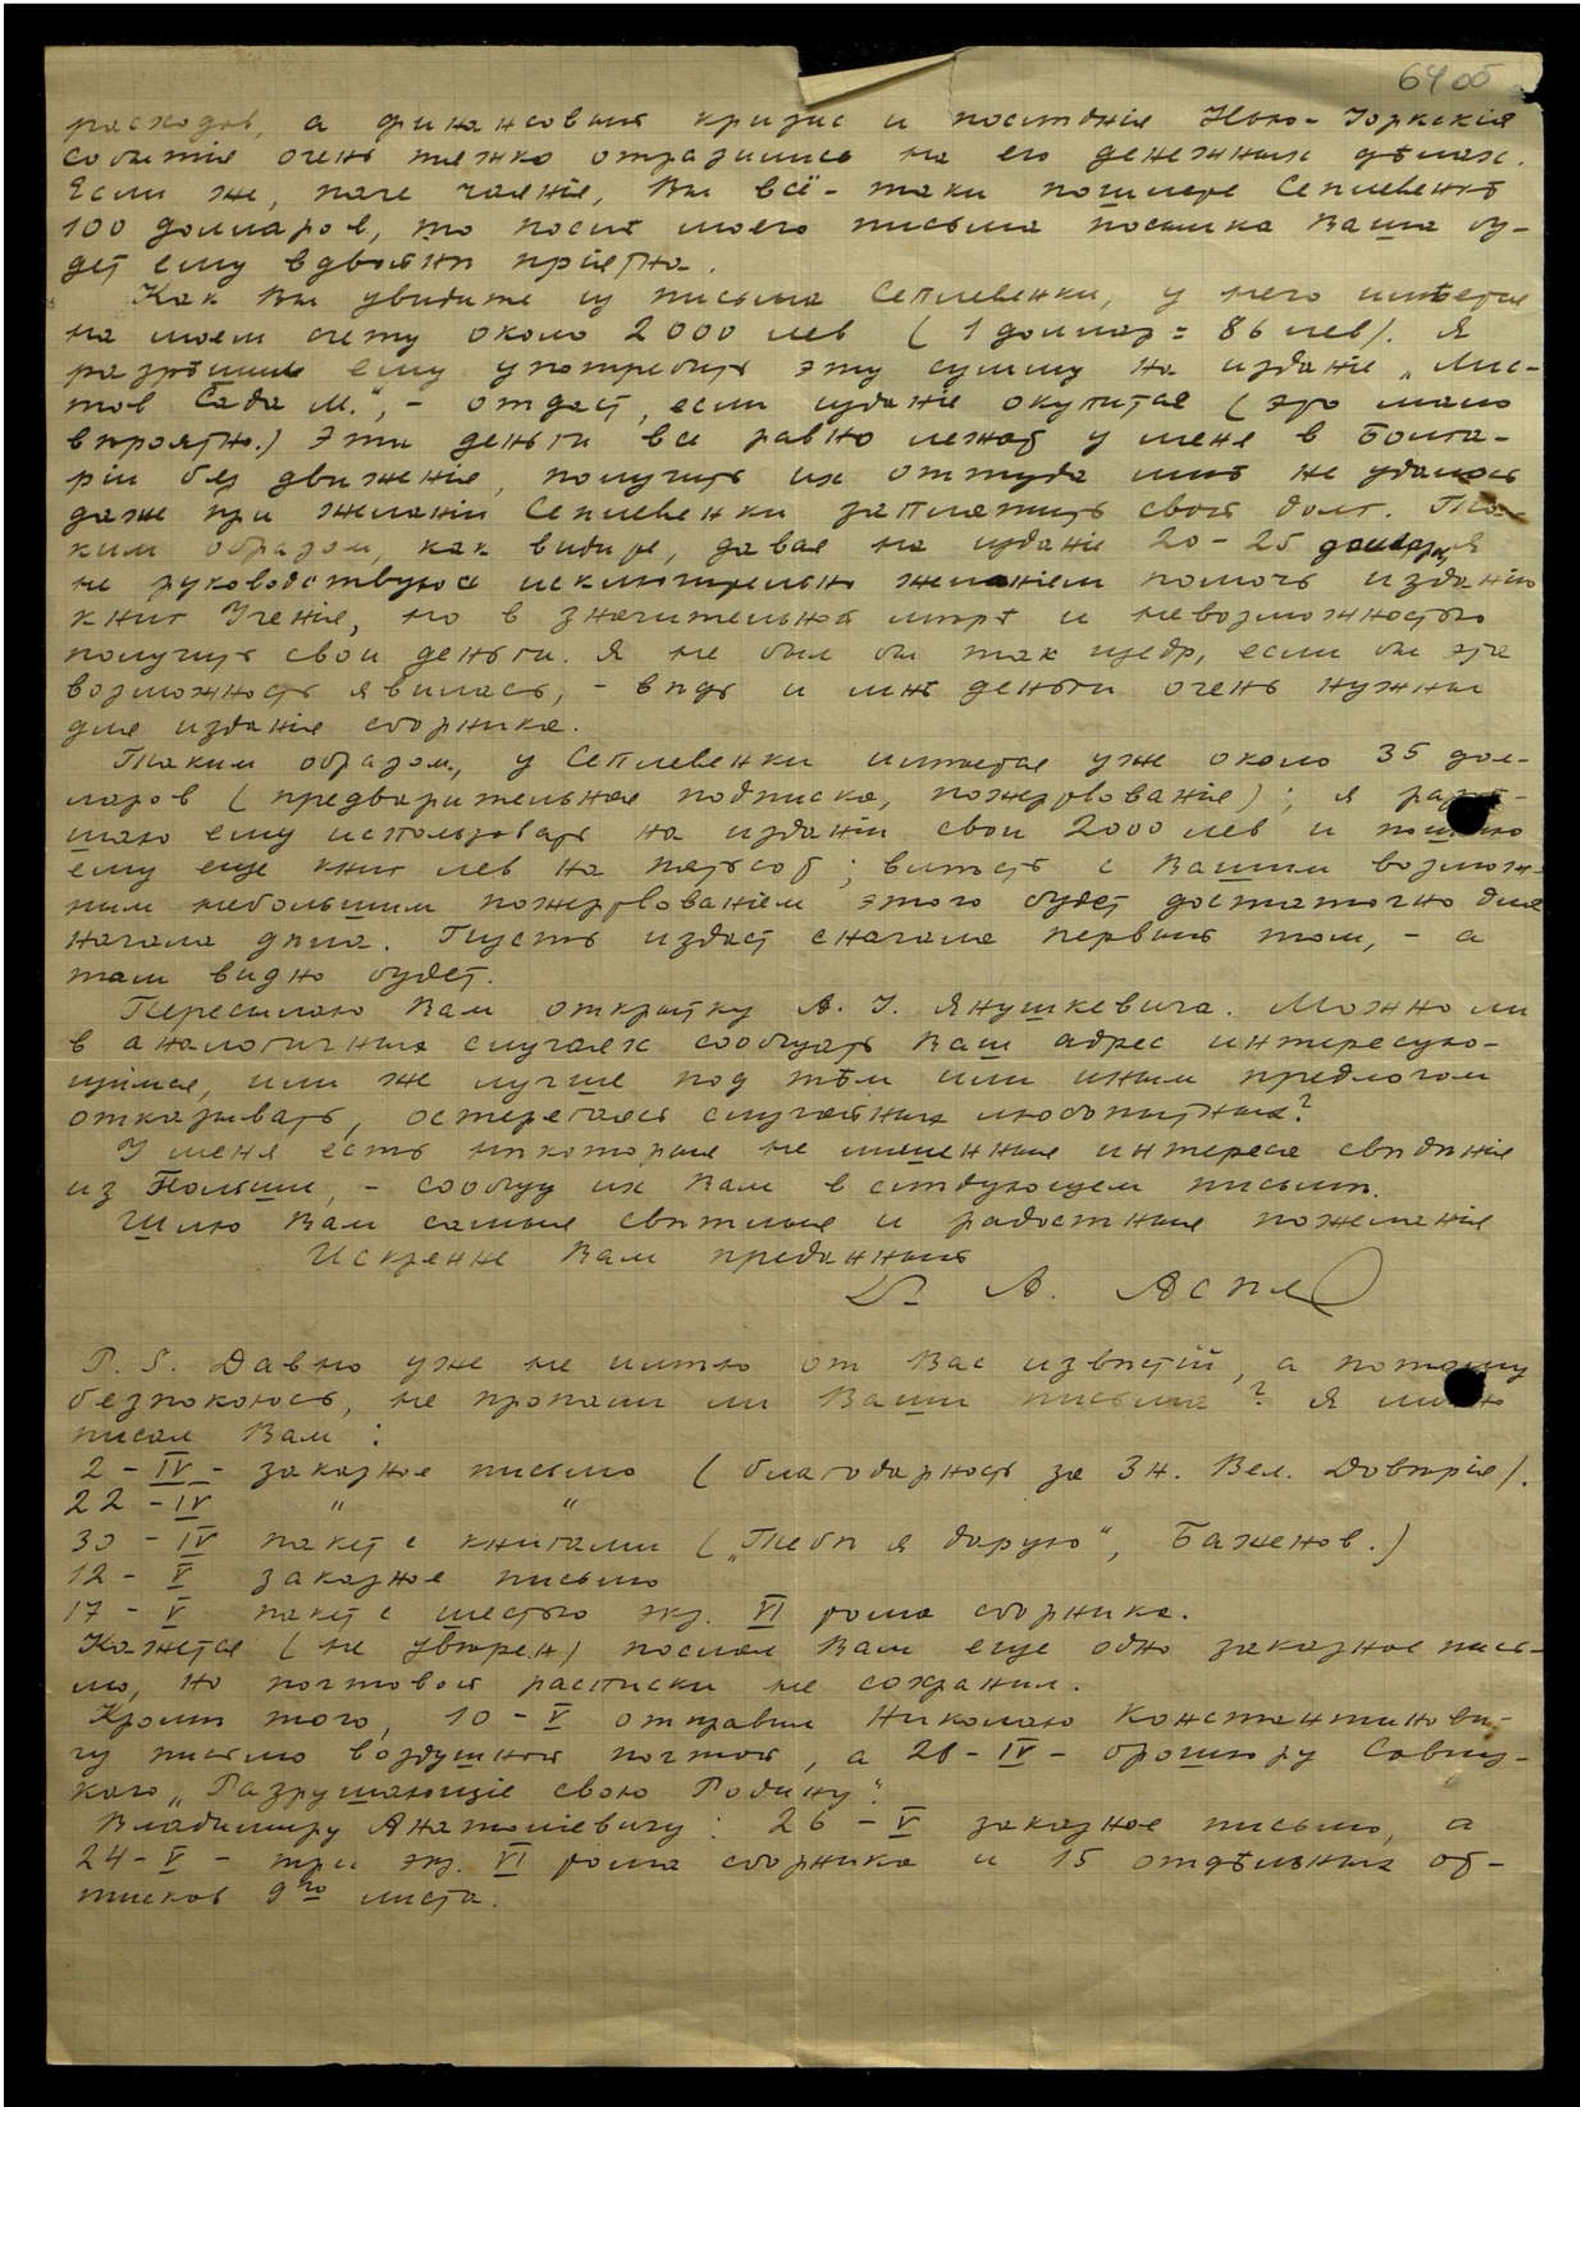 64об
расходов, а финансовый кризис и послѣднія Нью-Іоркскія
событія очень тяжко отразились на его денежных дѣлах.
Если же, паче чаянія, Вы всё-таки пошлете Сеплевенкѣ
100 долларов, то послѣ моего письма посылка Ваша бу-
дет ему вдвойнѣ пріятна.
Как Вы увидите из письма Сеплевенки, у него имѣется
на моем счету около 2000 лев (1 доллар = 86 лев). Я
разрѣшил ему употребить эту сумму на изданіе „Лис-
тов Сада М.", - отдаст, если изданіе окупится (это мало
вѣроятно.) Эти деньги все равно лежат у меня в Болга-
ріи без движенія, получить их оттуда мнѣ не удалось
даже при желаніи Сеплевенки заплатить свой долг. Та-
ким образом, как видите, давая на изданіе 20-25 долларов, я
не руководствуюсь исключительно желаніем помочь изданію
книг Ученія, но в значительной мѣрѣ и невозможностью
получить свои деньги. Я не был бы так щедр, если бы эта
возможность явилась, - вѣдь и мнѣ деньги очень нужны
для изданія сборника.
Таким образом, у Сеплевенки имѣется уже около 35 дол-
ларов (предварительная подписка, пожертвованія); я разрѣ-
шаю ему использовать на изданіи свои 2000 лев и пошлю
ему еще книг лев на пятьсот; вмѣстѣ с Вашим возмож-
ным небольшим пожертвованіем этого будет достаточно для
начала дѣла. Пусть издаст сначала первый том, - а
там видно будет.
Пересылаю Вам открытку А. И. Янушкевича. Можно ли
в аналогичных случаях сообщать Ваш адрес интересую-
щимся, или же лучше под тѣм или иным предлогом
отказывать, остерегаясь случайных любопытных?
У меня есть нѣкоторыя не лишенныя интереса свѣдѣнія
из Польши, - сообщу их Вам в слѣдующем письмѣ.
Шлю Вам самыя свѣтлыя и радостныя пожеланія
Искренне Вам преданный
А. Асп
P. S. Давно уже не имѣю от Вас извѣстій, а потому
безпокоюсь, не пропали ли Ваши письма? Я
писал Вам:
2 - IV - заказное письмо (благодарность за Зн. Вел. Довѣрія).
22 - IV " "
30 - IV пакет с книгами („Тебѣ я дарую", Баженов.)
12 - V заказное письмо
17 - V пакет с шестью экз. VI тома сборника.
Кажется (не увѣрен) послал Вам еще одно заказное пись-
мо, но почтовой расписки не сохранил.
Кромѣ того, 10 - V отправил Николаю Константинови-
чу письмо воздушной почтой, а 28 - IV - брошюру Савиц-
каго „Разрушающіе свою Родину".
Владимиру Анатольевичу: 26 - V заказное письмо, а
24 - V - три экз. VI тома сборника и 15 отдѣльных от-
тисков 9го листа.